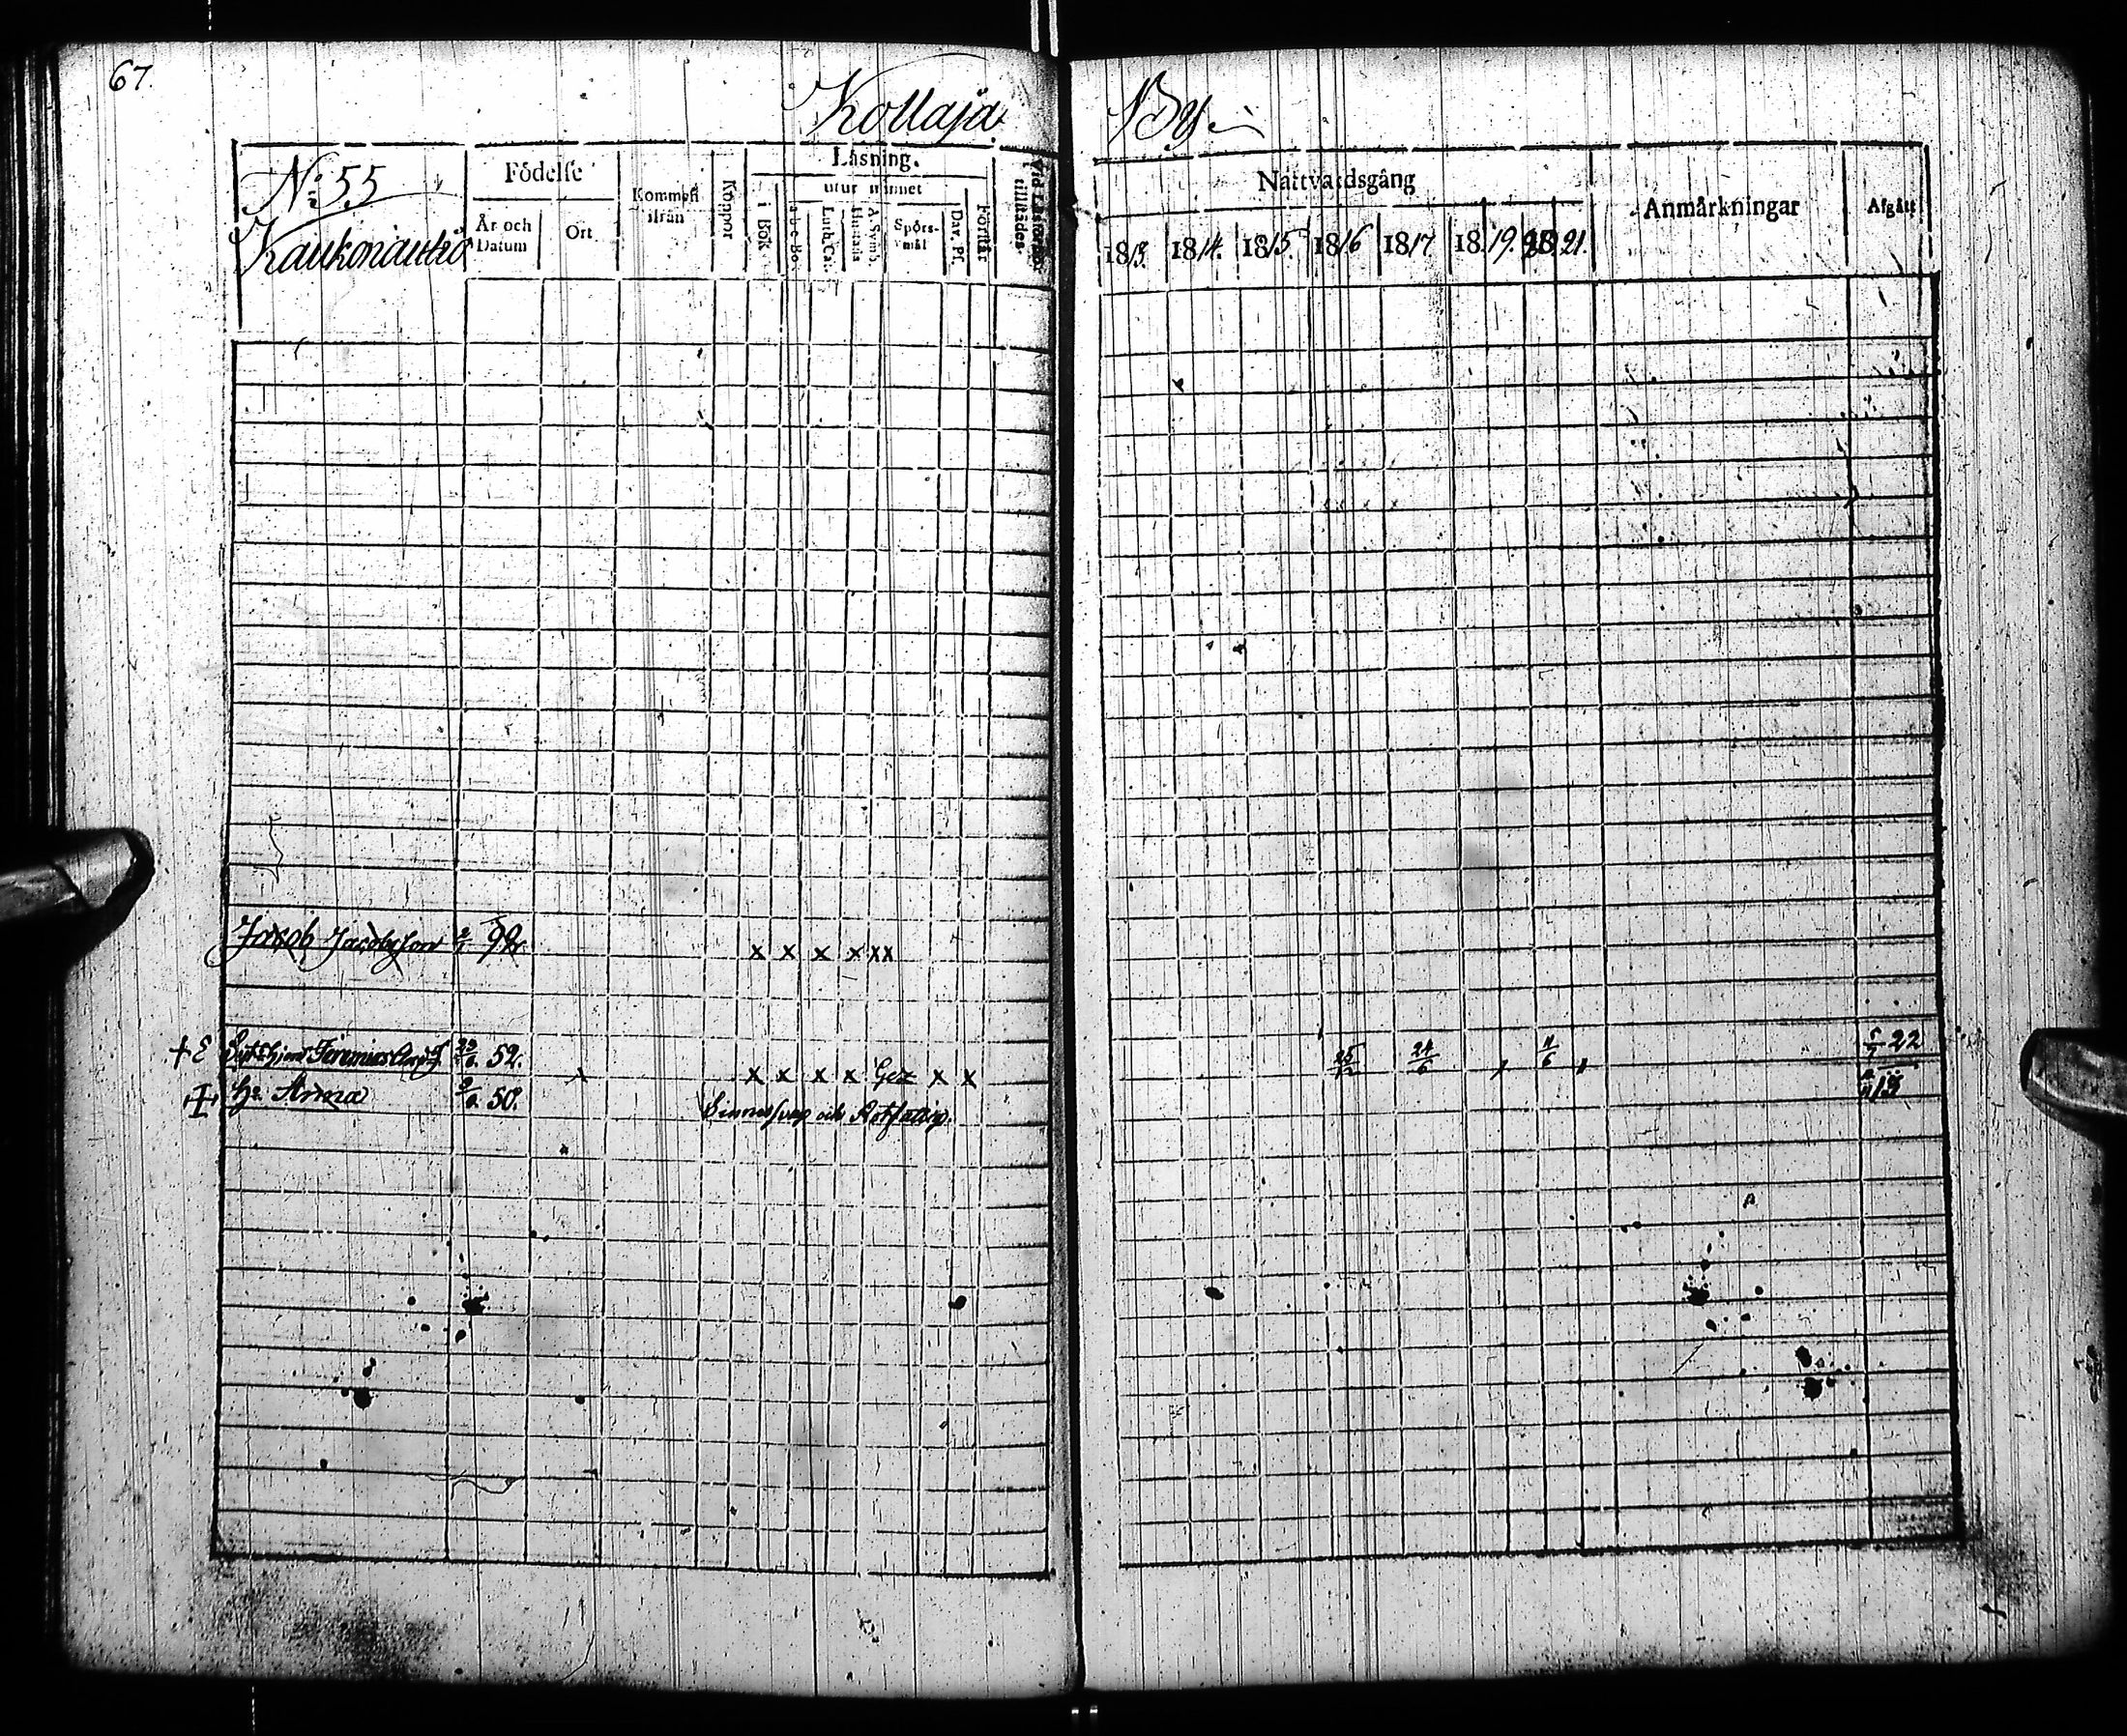 67.
Kollaja By.
No 55
Kaukoniautio
Födelse
År och Datum
Ort
Kommen ifrån
Koppor
Läsning.
i Bok
utur minnet
a-b-c-Bo.
Luth. Cat.
Hustafla
A. Symb.
Spörs-mål
Dav. Ps.
Förstår
Vid Läsförhör tillstädes.
Nattvardsgång
1813. 1814. 1815. 1816 1817 18 19. 20. 21.
Anmärkningar
Afgått
Jacob Jacobsson 2/1 98. x x x x x x
+ E Jeremias 52. x x x x Gez x x 24/6 11/6 5/7 22
+ Hu Anna 50. Sinnessvag och Rotfattig.